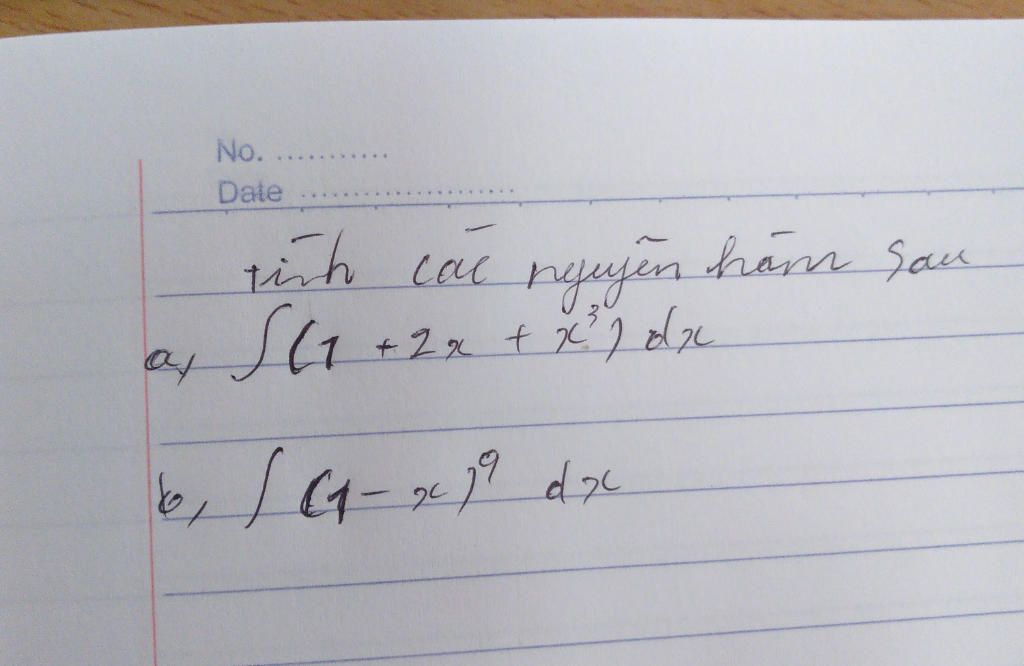 No. ...........
Date ......................
tính các nguyên hàm sau
a, ∫(1 + 2x + x³) dx
b, ∫ (1 - x)⁹ dx